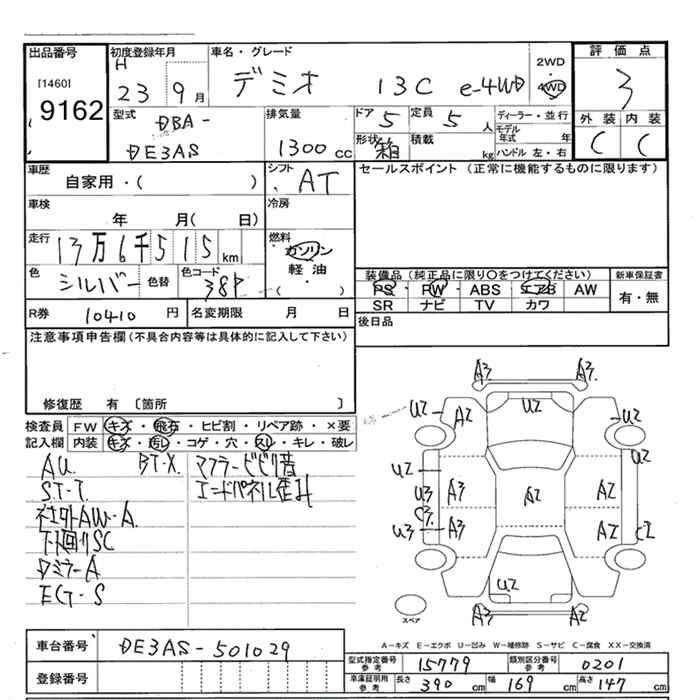 出品番号 初度登録年月 車名・グレード 2WD 評価点
[1460] H 23 9月 デミオ 13C e-4WD 4WD 3
9162 型式 DBA- 排気量 ドア 5 定員 5人 ディーラー・並行 外装 内装
DE3AS 1300cc 形状 箱 積載 kg モデル年式 年 C C
ハンドル 左・右
車歴 自家用・( ) シフト AT セールスポイント (正常に機能するものに限ります)
車検 年 月( 日) 冷房
走行 13万6千515km 燃料 ガソリン
軽油
( )
色 シルバー 色替 色コード 38P
装備品 (純正品に限り○をつけてください) 新車保証書
PS PW ABS エアB AW 有・無
SR ナビ TV カワ
R券 10410円 名変期限 月 日 後日品
注意事項申告欄(不具合内容等は具体的に記入して下さい)
修復歴 有 〔箇所 〕
検査員 FW キズ・飛石・ヒビ割・リペア跡・×要
記入欄 内装 キズ・汚レ・コゲ・穴・スリ・キレ・破レ
AU. BT-X. マフラービビリ音
S.T-T. エンドパネル歪み
AW-A.
下廻りSC
ミラーA
EG-S
A3 A3
U2 A2 U2 U2
U2 U2
U3 A3 A2 A2
C3
U3 A3 A2 C2
U2
A3 A2
スペア
A-キズ E-エクボ U-凹み W-補修跡 S-サビ C-腐食 XX-交換済
車台番号 DE3AS-501029
登録番号
型式指定番号 参考 15779 類別区分番号 参考 0201
車庫証明用 参考 長さ 390cm 幅 169cm 高さ 147cm